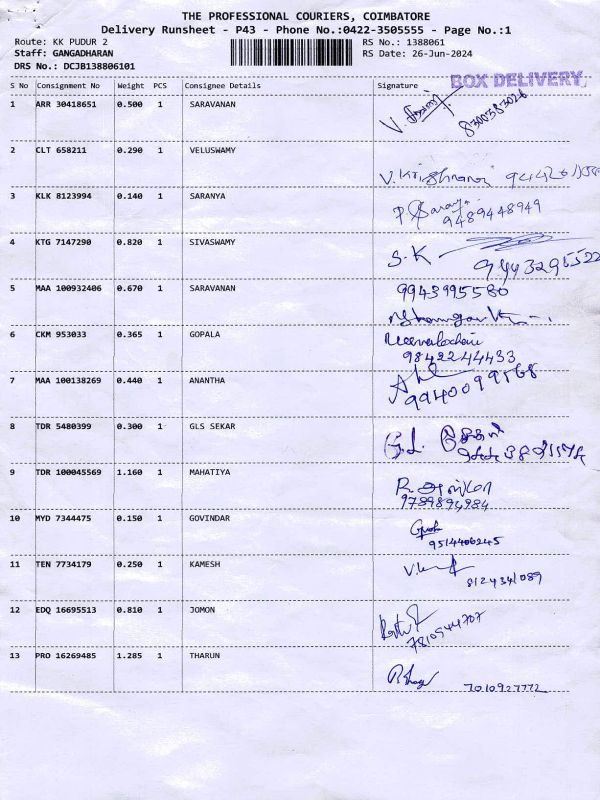 THE PROFESSIONAL COURIERS, COIMBATORE
Delivery Runsheet - P43 - Phone No.:0422-3505555 - Page No.:1
Route: KK PUDUR 2 RS No.: 1388061
Staff: GANGADHARAN RS Date: 26-Jun-2024
DRS No.: DCJB138806101
S No Consignment No Weight PCS Consignee Details Signature BOX DELIVERY
1 ARR 30418651 0.500 1 SARAVANAN
V. 8300383026
2 CLT 658211 0.290 1 VELUSWAMY
V. Krishnaraj
3 KLK 8123994 0.140 1 SARANYA
P Saranya
9489448949
4 KTG 7147290 0.820 1 SIVASWAMY
S.K
9443295522
5 MAA 100932406 0.670 1 SARAVANAN 9943995580
6 CKM 953033 0.365 1 GOPALA Meenalochani
9842244433
7 MAA 100138269 0.440 1 ANANTHA
8 TDR 5480399 0.300 1 GLS SEKAR
G.L. சேகர்
9 TDR 100045569 1.160 1 MAHATIYA
R.
9789894984
10 MYD 7344475 0.150 1 GOVINDAR
9514406245
11 TEN 7734179 0.250 1 KAMESH
8124341089
12 EDQ 16695513 0.810 1 JOMON
7810944707
13 PRO 16269485 1.285 1 THARUN
7010927772